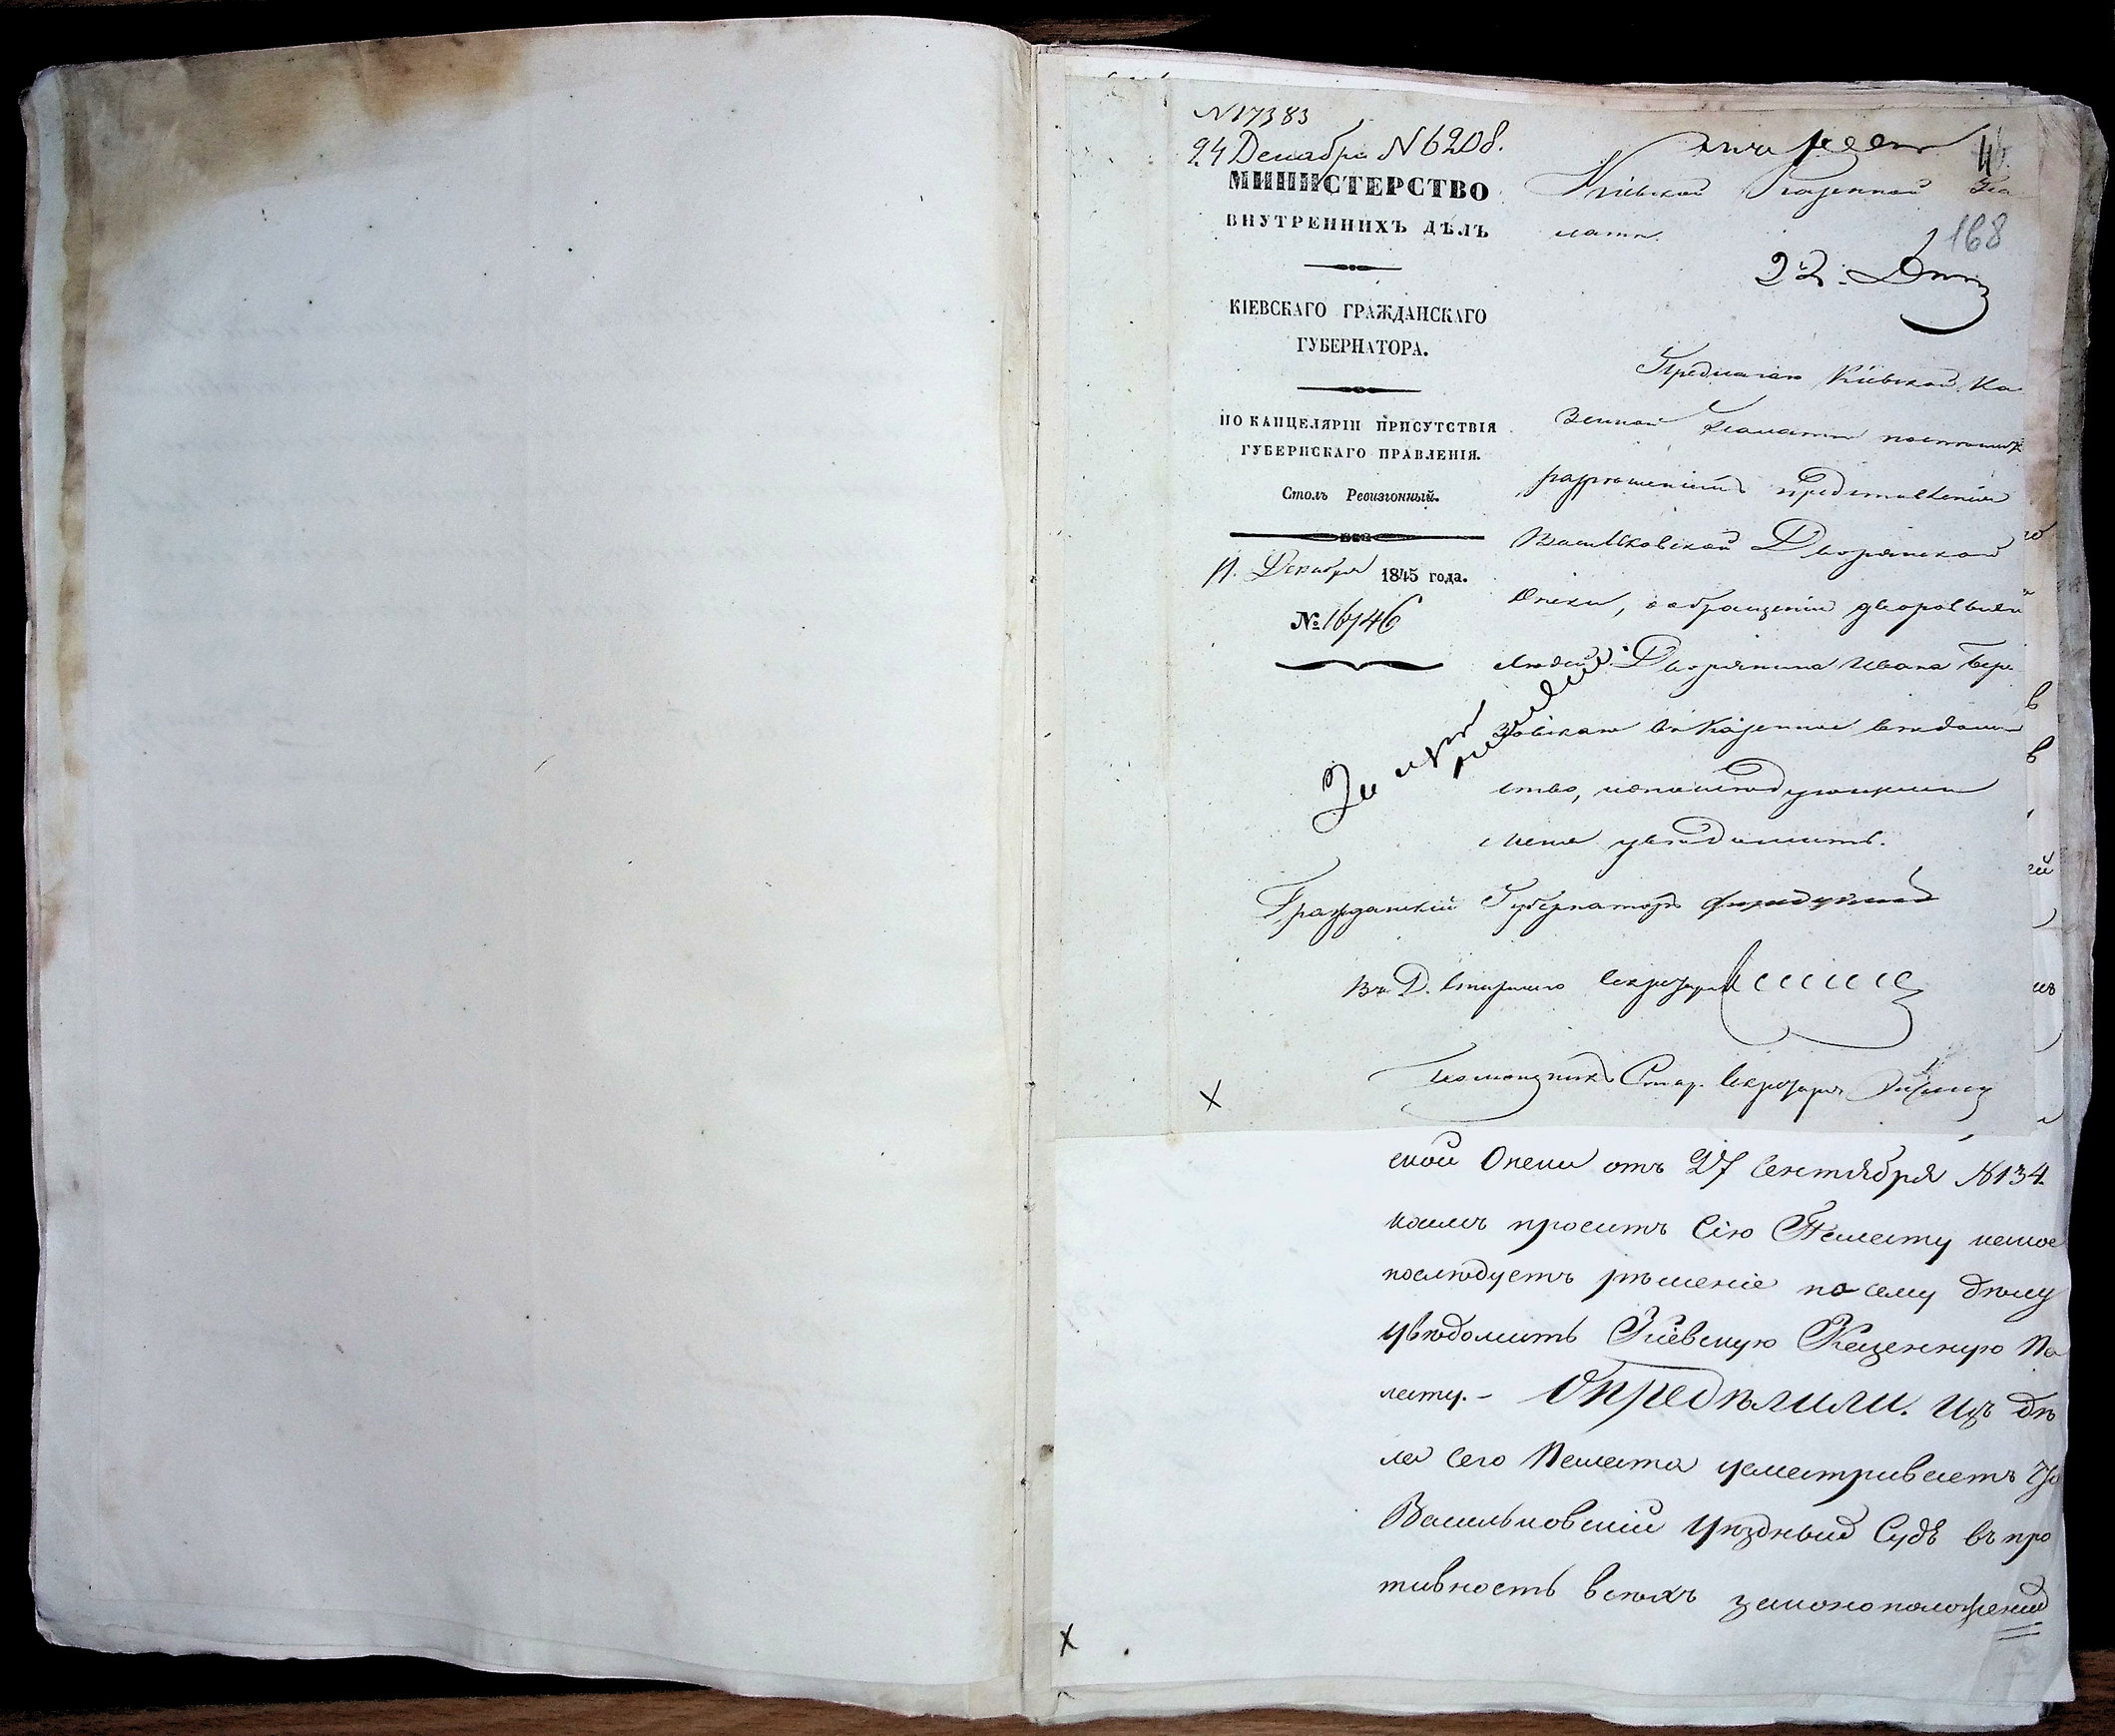 №17383
24 Декабря №6208.
МИНИСТЕРСТВО
ВНУТРЕННИХЪ ДѢЛЪ
КІЕВСКАГО ГРАЖДАНСКАГО
ГУБЕРНАТОРА.
ПО КАНЦЕЛЯРІИ ПРИСУТСТВІЯ
ГУБЕРНСКАГО ПРАВЛЕНІЯ.
Столъ Ревизіонный.
11. Декабря 1845 года.
№ 16746
Кіевской Казенной Па
латѣ.
168
22.
Предлагаю Кіевской Ка
зенной Палатѣ
разрѣшеніемъ представленія
Васильковской Дворянской
Опеки, о обращеніи дворовыхъ
людей Дворянина Ивана Бере
зовскаго въ Казенное вѣдом
ство,
меня увѣдомить.
Гражданскій Губернаторъ
Въ Д. Старшаго Секретаря
Помощникъ Стар. Секретаря
ской Опеки отъ 27 Сентября №134.
коимъ проситъ Сію Палату какое
послѣдуетъ рѣшеніе по сему дѣлу
увѣдомить Кіевскую Казенную Па
лату.- Опредѣлили. Изъ дѣ
ла сего Палата усматриваетъ что
Васильковскій Уѣздный Судъ въ про
тивность всѣхъ законоположеній